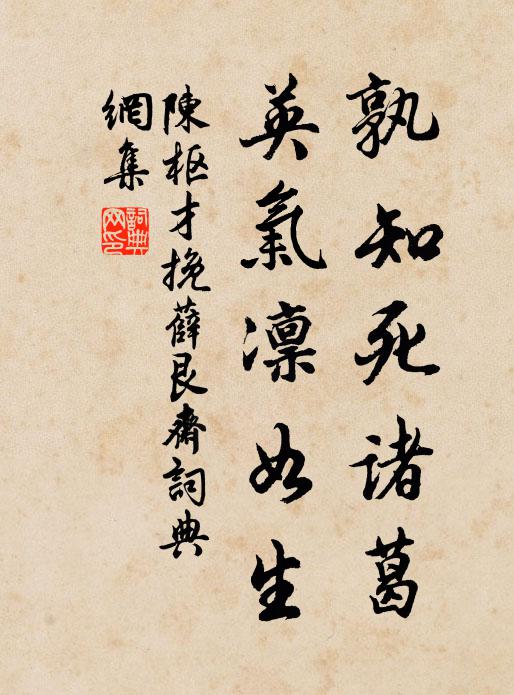 孰知死诸葛
英氣凛如生
陳枢才挽薛艮齋詞典
網集
詞典
网印